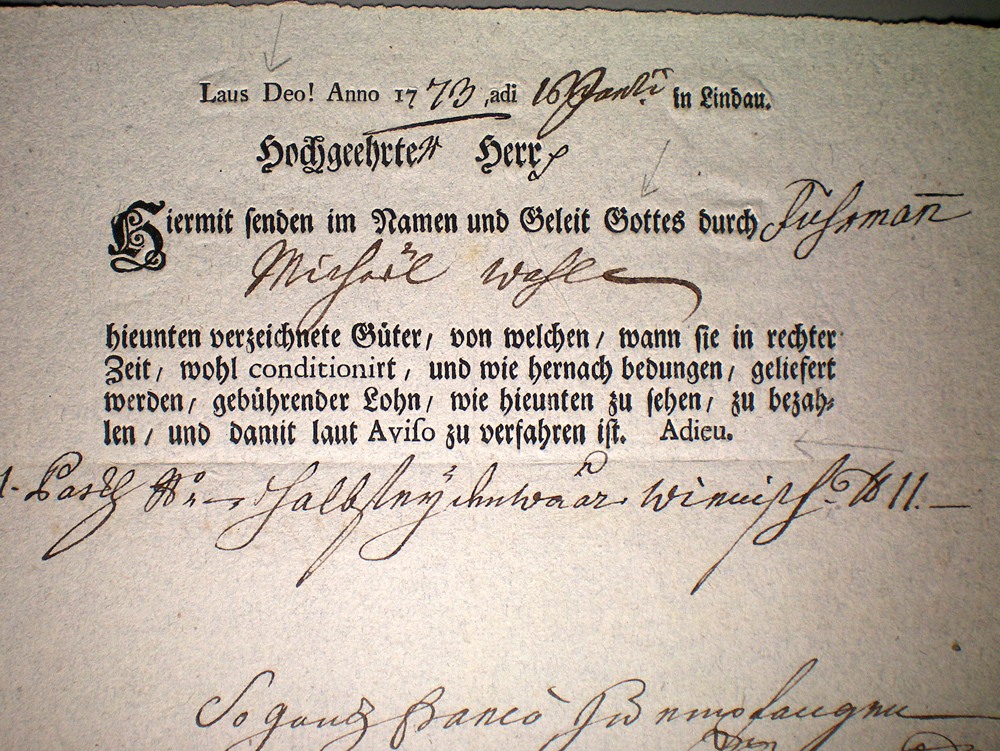 Laus Deo! Anno 1773, adi 16 in Lindau.
Hochgeehrter Herr
Hiermit senden im Namen und Geleit Gottes durch Fuhrman̄
Michaël Wahl
hieunten verzeichnete Güter/ von welchen/ wann sie in rechter
Zeit/ wohl conditionirt, und wie hernach bedungen/ geliefert
werden/ gebührender Lohn/ wie hieunten zu sehen/ zu bezah-
len/ und damit laut Aviso zu verfahren ist. Adieu.
1. halbseÿdenwaar 11.
So gantz franco zu empfangen